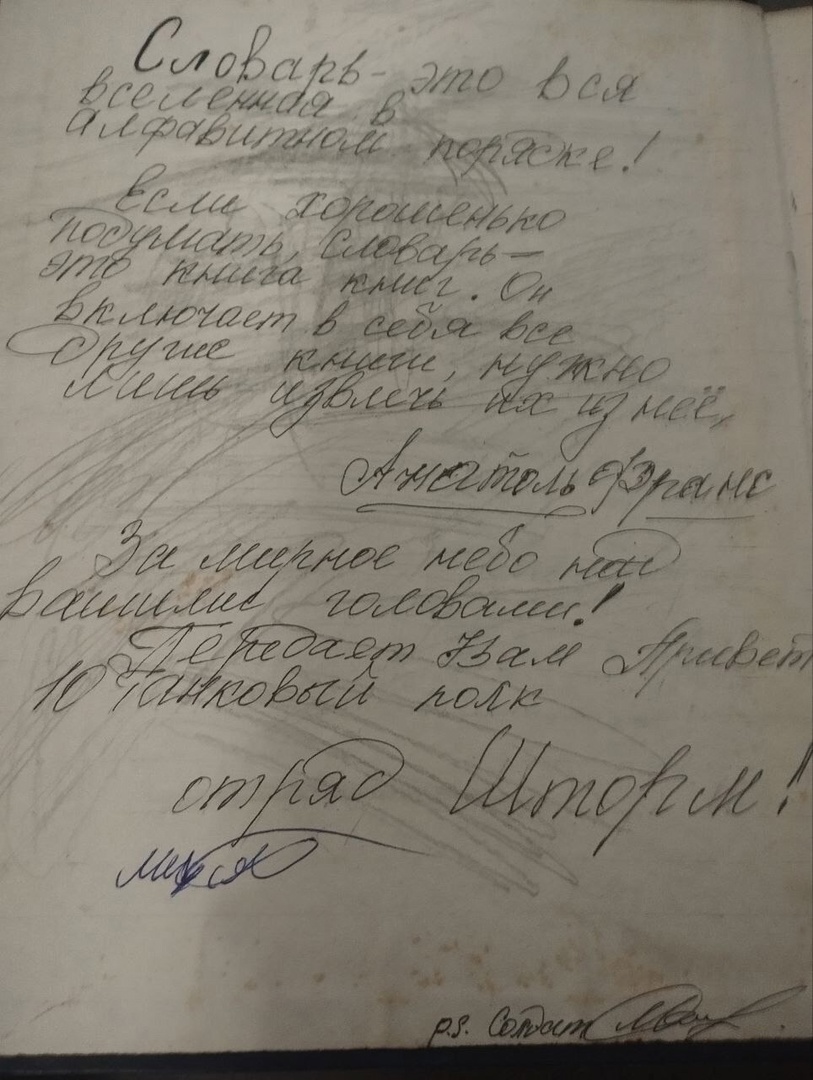 Словарь - это вся
вселенная в
алфавитном порядке!
Если хорошенько
подумать, словарь —
это книга книг. Он
включает в себя все
другие книги, нужно
лишь извлечь их из неё.
Анатоль Франс
За мирное небо над
вашими головами!
Передаёт Вам Привет
10 танковый полк
отряд Шторм!
p.s. Солдат